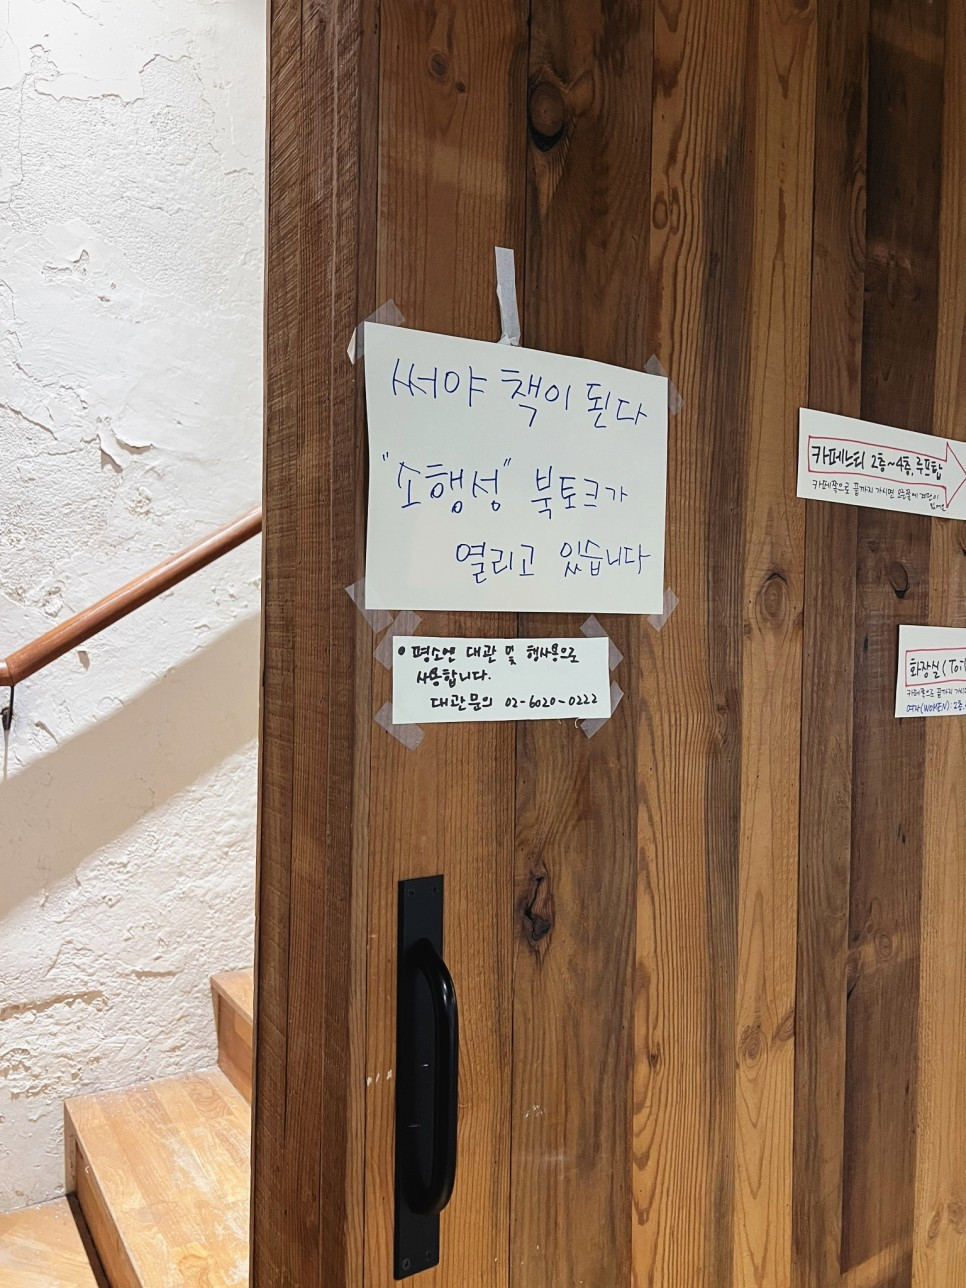 써야 책이 된다
"소행성" 북토크가
열리고 있습니다
• 평소엔 대관 및 행사용으로
사용합니다.
대관문의 02-6020-0222
2층~4층, 루프탑
카페쪽으로 끝까지 가시면 계단이
화장실(Toil
카페쪽으로 끝까지 가시
여자(WOMEN): 2층,